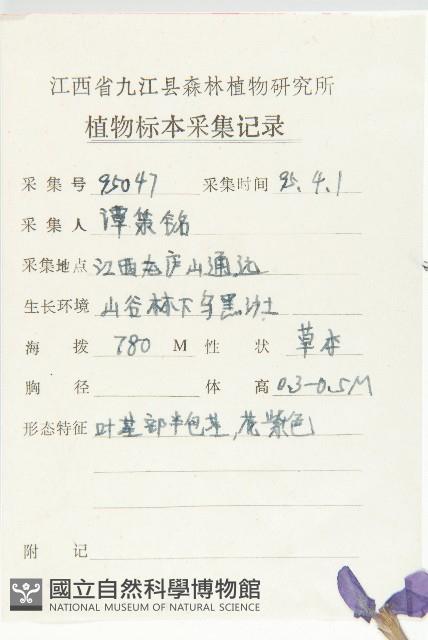 江西省九江县森林植物研究所
植物标本采集记录
采集号 95047 采集时间 95.4.1
采集人 谭策铭
采集地点 江西九庐山通远
生长环境 山谷林下乌黑沙土
海拨 780 M 性状 草本
胸径 体高 0.3-0.5M
形态特征 叶基部半包茎,花紫色
附记
國立自然科學博物館
NATIONAL MUSEUM OF NATURAL SCIENCE